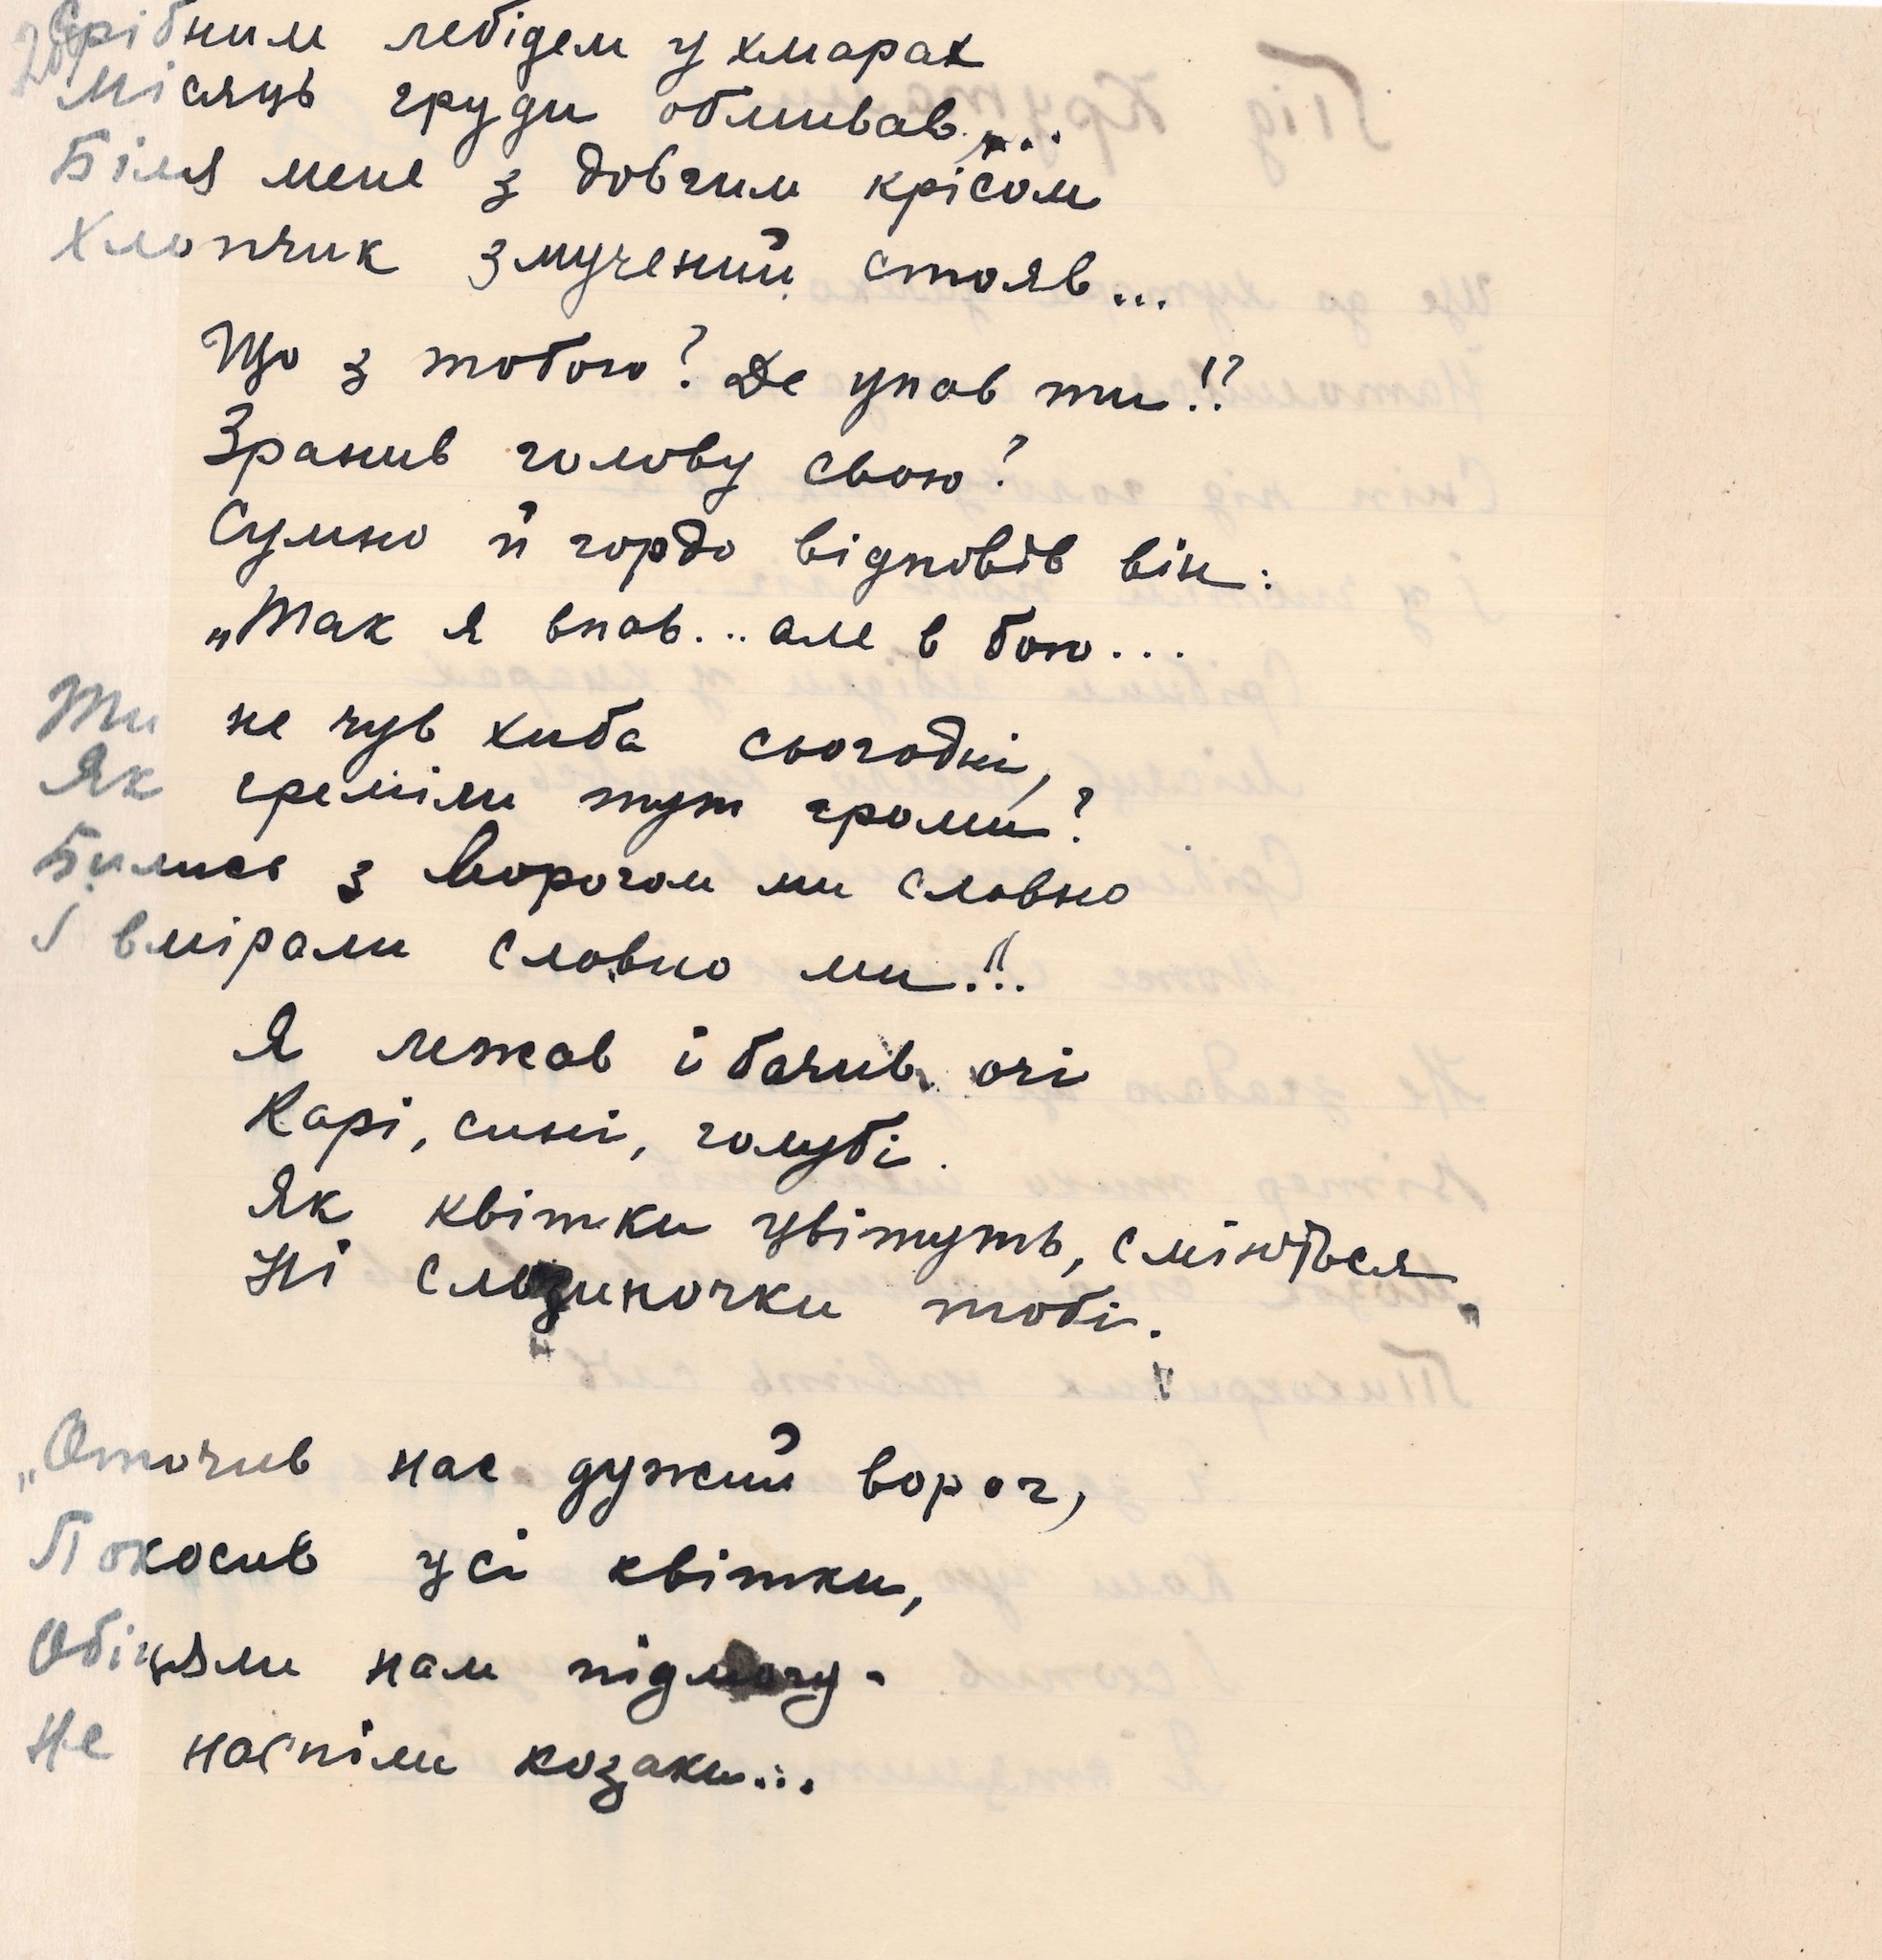 Срібним лебідем у хмарах
Місяць груди обмивав...
Біля мене з довгим крісом
Хлопчик змучений стояв...
Що з тобою? Де упав ти!?
Зранив голову свою?
Сумно й гордо відповів він:
„Так я впав... але в бою...
Ти не чув хиба сьогодні,
Як греміли тут громи?
Бились з ворогом ми славно
І вмірали славно ми!!
Я лежав і бачив очі
Карі, сині, голубі.
Як квітки цвітуть, сміються
Ні слезиночки тобі.
„Оточив нас дужий ворог,
Покосив усі квітки,
Обіцяли нам підмогу -
Не наспіли козаки...
Під Крутами